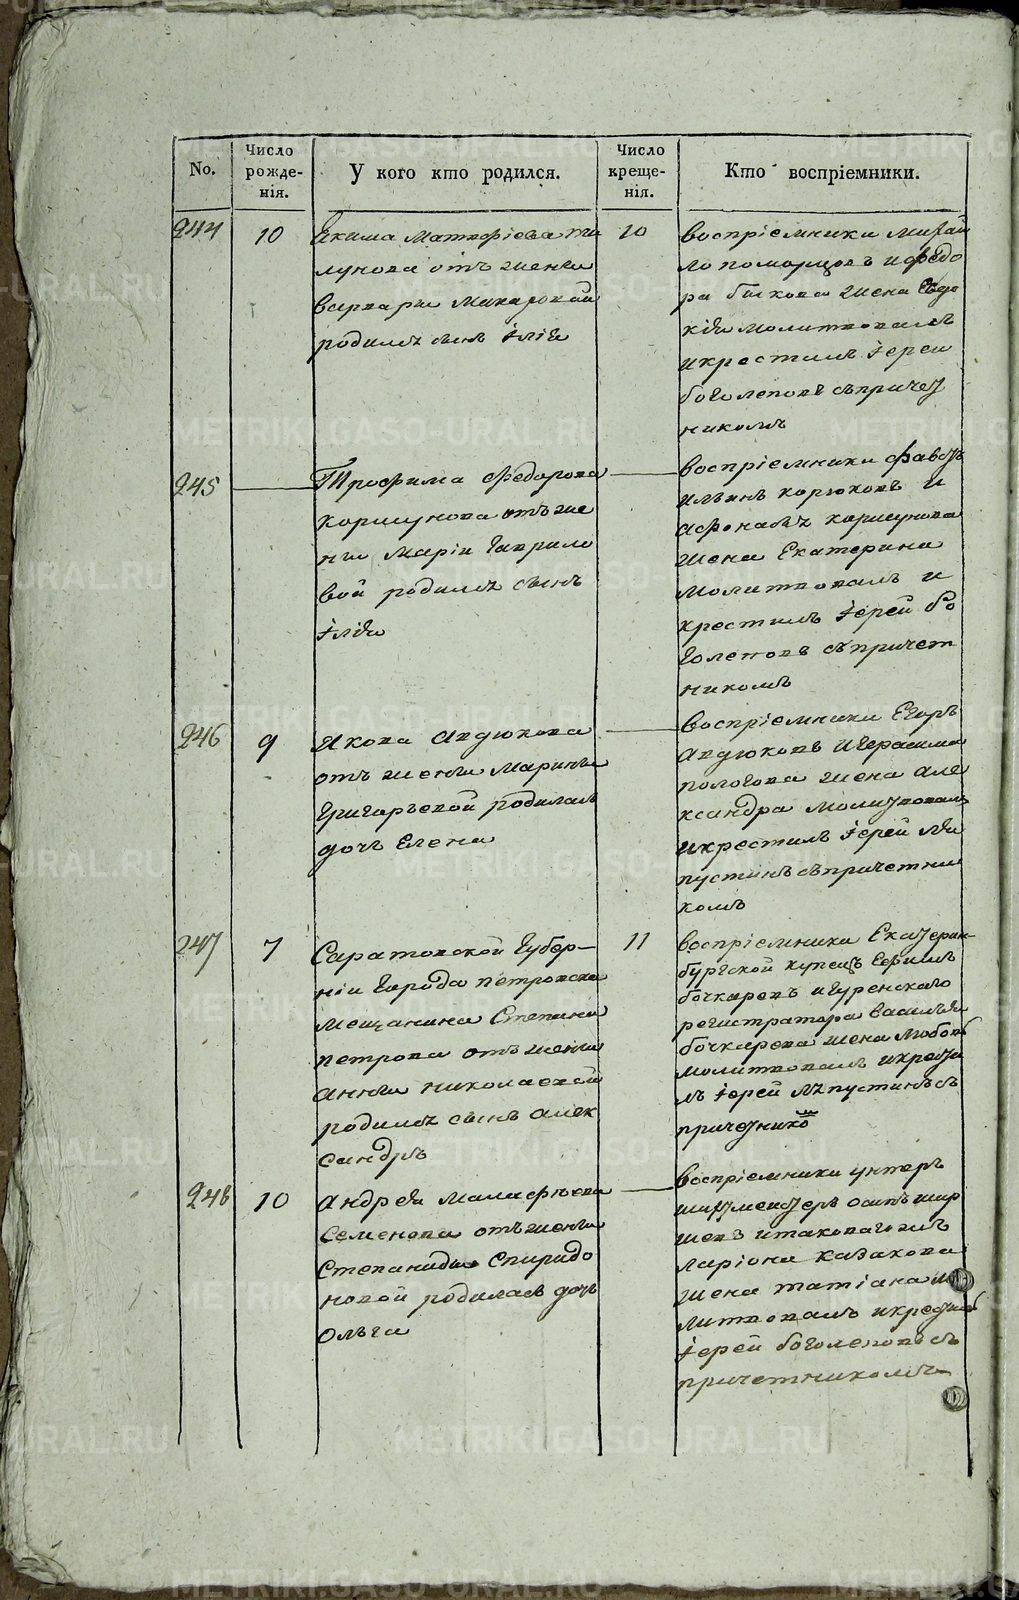 No.
Число рожде-нія.
У кого кто родился.
Число креще-нія.
Кто воспріемники.
244
10
Екима Матѳфіева ти
лунова отъ жены
варвары Макаровой
родился сынъ Ілія
10
воспріемники Михай
ло поморцовъ и федо
ра быкова жена Евдо
кія молитвовалъ
и крестилъ іерей
боголеповъ съ причет
никомъ
245
Трофима Федорова
коршунова отъ же
ны Маріи Гаврило
вой родился сынъ
Ілія
воспріемники
ильинъ корюковъ и
коршунова
жена Екатерина
молитвовалъ и
крестилъ іерей бо
голеповъ съ причет
никомъ
246
9
Якова Авдюкова
отъ жены Марины
Григорьевой родилась
дочь Елена
воспріемники Егоръ
Авдюковъ и герасима
пологова жена але
ксандра молитвовалъ
и крестилъ іерей ля
пустинъ съ причетни
комъ
247
7
Саратовской Губер-
ніи города петровска
мещанина Степана
петрова отъ жены
анны николаевой
родился сынъ алек
сандръ
11
воспріемники Екатерин-
бургской купецъ Ефимъ
бочкаревъ и
регистратора василья
бочкарева жена любовь
молитвовалъ и крести
лъ іерей ляпустинъ съ
причетнико
248
10
Андрея Малафѣева
Семенова отъ жены
Степаниды Спиридо
новой родилась дочь
ольга
воспріемники унтеръ
осипъ шир
шовъ и таковагожъ
ларіона казакова
жена татіана мо
литвовалъ и крестилъ
іерей боголеповъ съ
причетникомъ